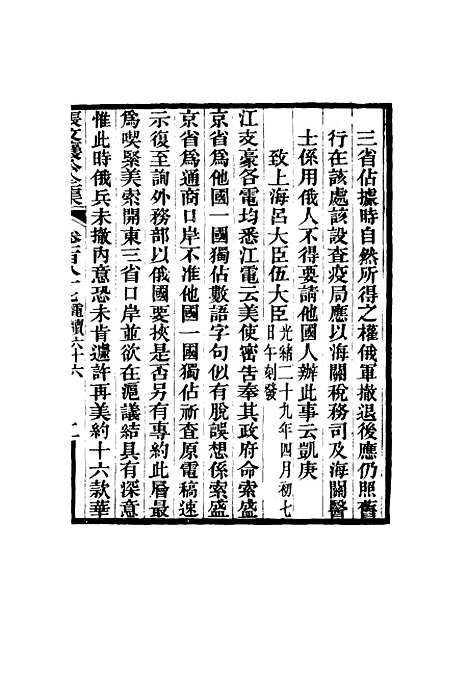 三省佔據時自然所得之權俄軍撤退後應仍照舊
行在該處該設查疫局應以海關稅務司及海關醫
士係用俄人不得要請他國人辦此事云凱庚
致上海呂大臣伍大臣光緒二十九年四月初七日午刻發
江支豪各電均悉江電云美使密告奉其政府命索盛
京省爲他國一國獨佔數語字句似有脫誤想係索盛
京省爲通商口岸不准他國一國獨佔祈查原電稿速
示復至詢外務部以俄國要挾是否另有專約此層最
爲喫緊美索開東三省口岸並欲在滬議結具有深意
惟此時俄兵未撤內意恐未肯遽許再美約十六款華
張文襄公全集
卷一百八十七電牘六十六